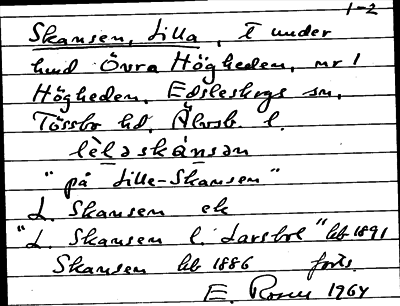 1-2
Skansen, Lilla, T under
hmd Övra Högheden, nr 1
Högheden, Edsleskogs sn,
Tössbo hd, Älvsb. l.
lèlaskánsan
"på Lille-Skansen"
L. Skansen ek
"L. Skansen l. Larsbol" hb 1891
Skansen hb 1886 forts.
E. 1964